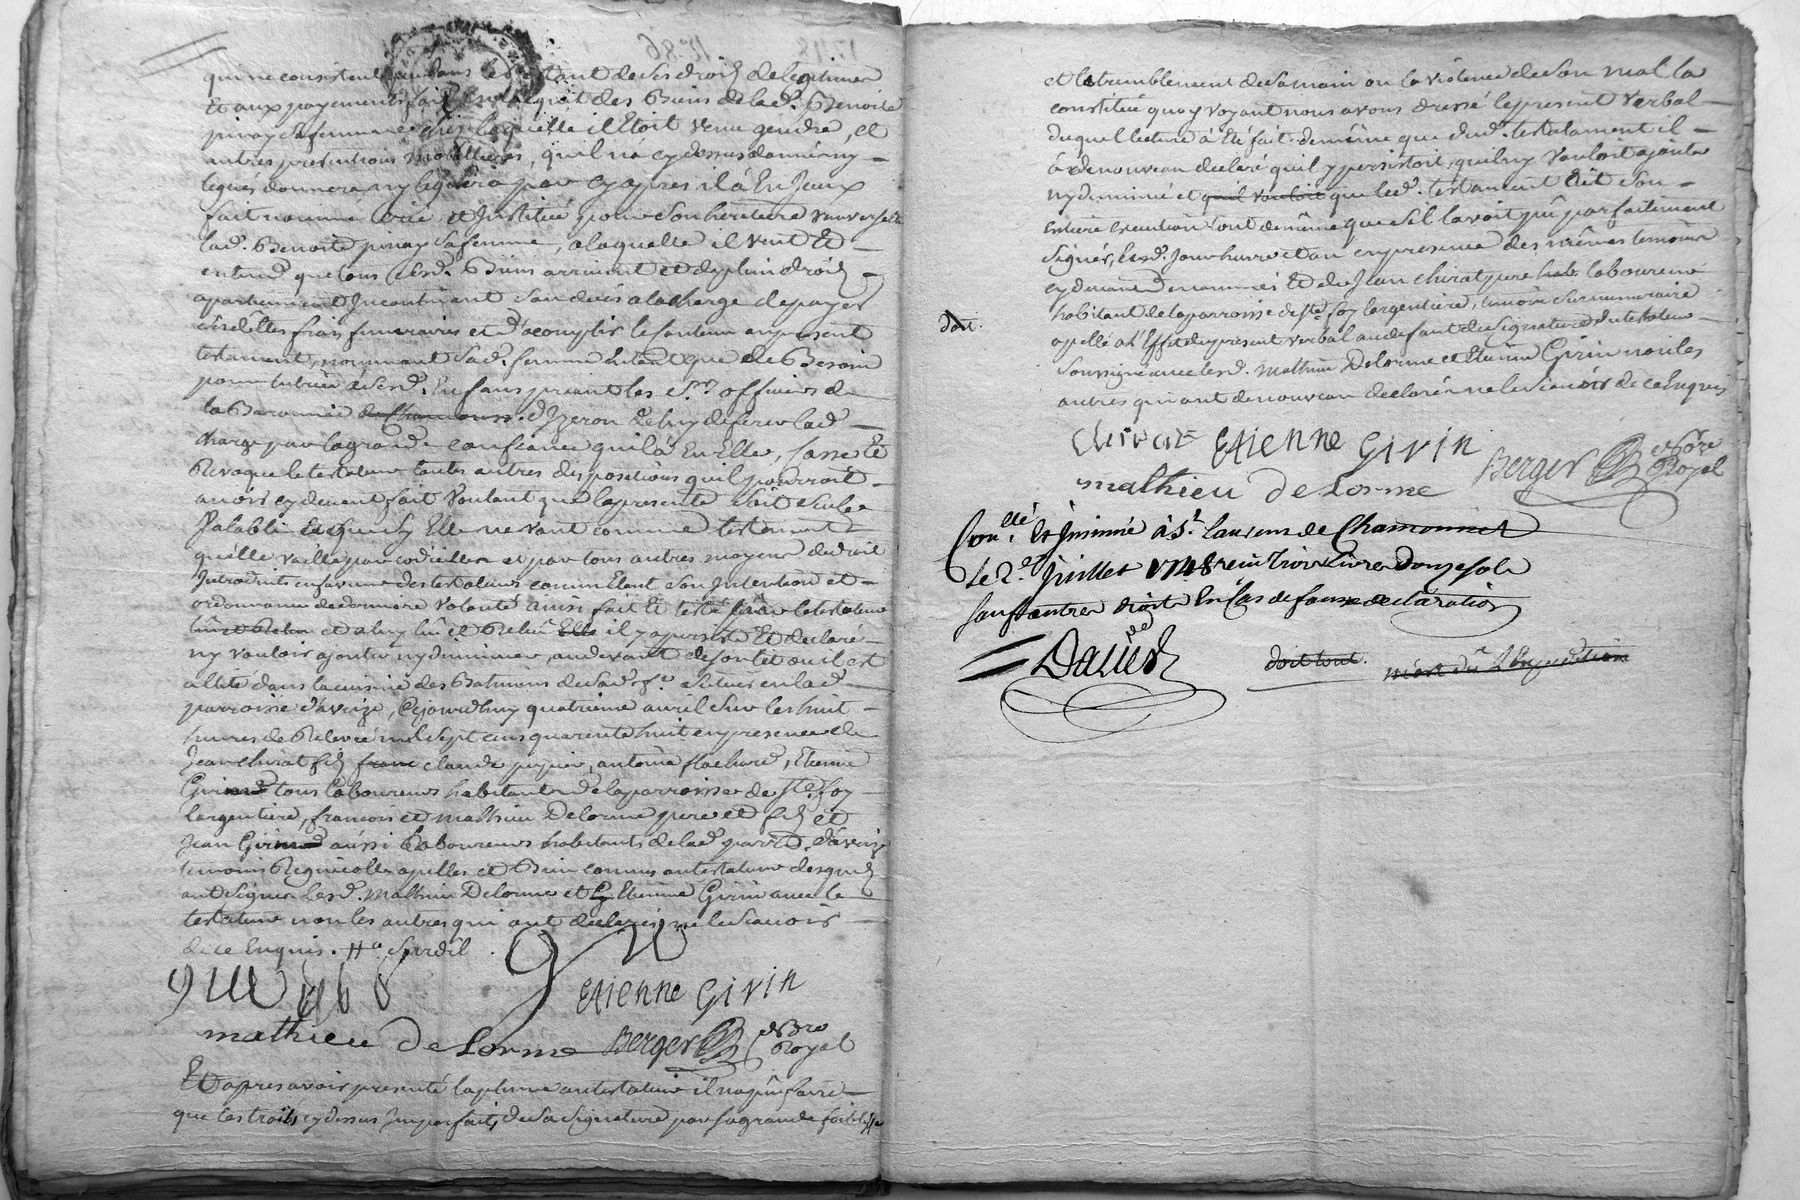 qui ne consistent que dans les droits de legitimes
Et aux payements faits en l'acquit des Biens de lad.e Benoite
pinay sa femme chez laquelle il Etoit venu gendre, et
autres pretentions mobilliaires, qu'il n'a cy dessus donné ny
legué, donnera ny leguera par cy apres il a En Jceux
fait nommé créé et Jnstitué pour son heritiere universelle
lad.e Benoite pinay sa femme, a laquelle il veut Et
entend que tous cesd. Biens arrivent et de plein droit
apartiennent Jncontinant son deces a la charge de payer
ses dêttes frais funeraires et d'acomplir le contenu au present
testament, nommant sad. femme entant que de Besoin
pour tutrice de sesd. Enfans priant les S.rs officiers de
la Baronnie de Chamousset d'Yzeron de luy deferer lad.
charge par la grande confiance qu'il a En Elle, Casse Et
Revoque le testateur toutes autres dispositions qu'il pourroit
avoir cy devant fait Voulant que la presente soit seulle
Valable Et que sy Elle ne vaut comme testament
qu'elle vaille par codicille et par tous autres moyens de droit
Jntroduits en faveur des testateurs comme Etant son Jntention et
ordonnance de derniere volonté ainsi fait Et testé par le testateur
lû et Relu et a luy lû et Relû Elle il y a persisté Et declaré
ny vouloir ajouter ny diminuer, au devant de son lit ou il est
alité dans la cuisine des Batimens de sad. f.e situés en lad.
parroisse d'aveize, Cejourdhuy quatrieme avril sur les huit
heures de Relevée mil sept cens quarente huit en presence de
Jean chirat fils franc claude pupier, antoine flachard, Etienne
Girin tous laboureurs habitants de la parroisse de S.te foy
l'argentiere, francois et mathieu Delorme pere et fils et
Jean Girin aussi laboureurs habitants de lad. parr.e d'aveize
temoins Requis et apellés et Bien connus au testateur desquels
ont signés lesd. mathieu Delorme et Etienne Girin avec le
testateur non les autres qui ont declaré ne le scavoir
de ce Enquis.
Etienne Girin
mathieu De Lorme Berger No.re Royal
Et apres avoir presenté la plume au testateur il n'a pû faire
que les traits cy dessus Jmparfaits de sa signature par sa grande foiblesse
et le tremblement de sa main ou la violence de son mal la
constitué quoy voyant nous avons dressé le present verbal
duquel lecture a Eté fait de même que dud. testament il
a de nouveau declaré qu'il y persistoit, qu'il n'y vouloit ajouter
ny diminué et qu'il vouloit que led. testament Eût son
entiere execution tout de même que s'il l'avoit pû parfaitement
signer, lesd. Jour heure et an en presence des mêmes temoins
cy devant nommés Et de Jean chirat pere hab. laboureur
habitant de la parroisse de S.te foy l'argentiere, temoin surnumeraire
apellé a l'Effet du present verbal au defaut de signature du testateur
soussigné avec lesd. mathieu Delorme et Etienne Girin non les
autres qui ont de nouveau declaré ne le scavoir de ce Enquis
doit.
Etienne Girin
mathieu De Lorme Berger No.re Royal
Con.llé & Jnsinué à S.t laurens de Chamousset
Le 2.e Juillet 1748 reçu Trois Livres Douze sols
sauf autres droits En Cas de fausse declaration
doit tout.